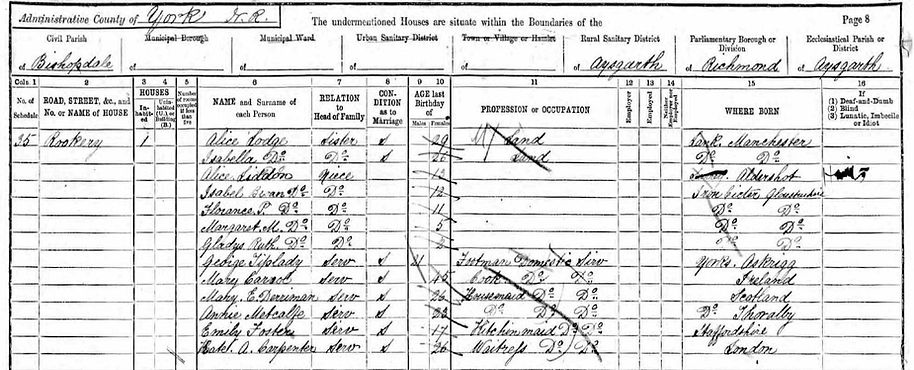 Administrative County of York N.R. The undermentioned Houses are situate within the Boundaries of the Page 8
Civil Parish Municipal Borough Municipal Ward Urban Sanitary District Town or Village or Hamlet Rural Sanitary District Parliamentary Borough or Division Ecclesiastical Parish or District
of Bishopdale of of of of of Aysgarth of Richmond of Aysgarth
Cols 1 2 3 4 5 6 7 8 9 10 11 12 13 14 15 16
No. of Schedule ROAD, STREET, &c., and No. or NAME of HOUSE HOUSES Inhabited Uninhabited (U.) or Building (B.) Number of rooms occupied if less than five NAME and Surname of each Person RELATION to Head of Family CONDITION as to Marriage AGE last Birthday of Males Females PROFESSION or OCCUPATION Employer Employed WHERE BORN If (1) Deaf-and-Dumb (2) Blind (3) Lunatic, Imbecile or Idiot
35 Rookery 1 Alice Lodge Sister S 29 Land Lank. Manchester
Isabella Do Do S 26 Land Do Do
Alice Niece 12 Aldershot
Isabel Do Do 12 Gloucestershire
Florance P. Do Do 11 Do Do
Margaret M. Do Do 5 Do Do
Gladys Ruth Do Do 2 Do Do
George Tiplady Serv S 21 Footman Domestic Serv Yorks. Askrigg
Mary Carrol Serv S 45 Cook Do Do Ireland
Mary E. Derriman Serv S 26 Housemaid Do Do Scotland
Annie Metcalfe Serv S 23 Do Do Do Do Thoralby
Emily Foster Serv S 17 Kitchenmaid Do Do Staffordshire
Kate A. Carpenter Serv S 26 Waitress Do Do London